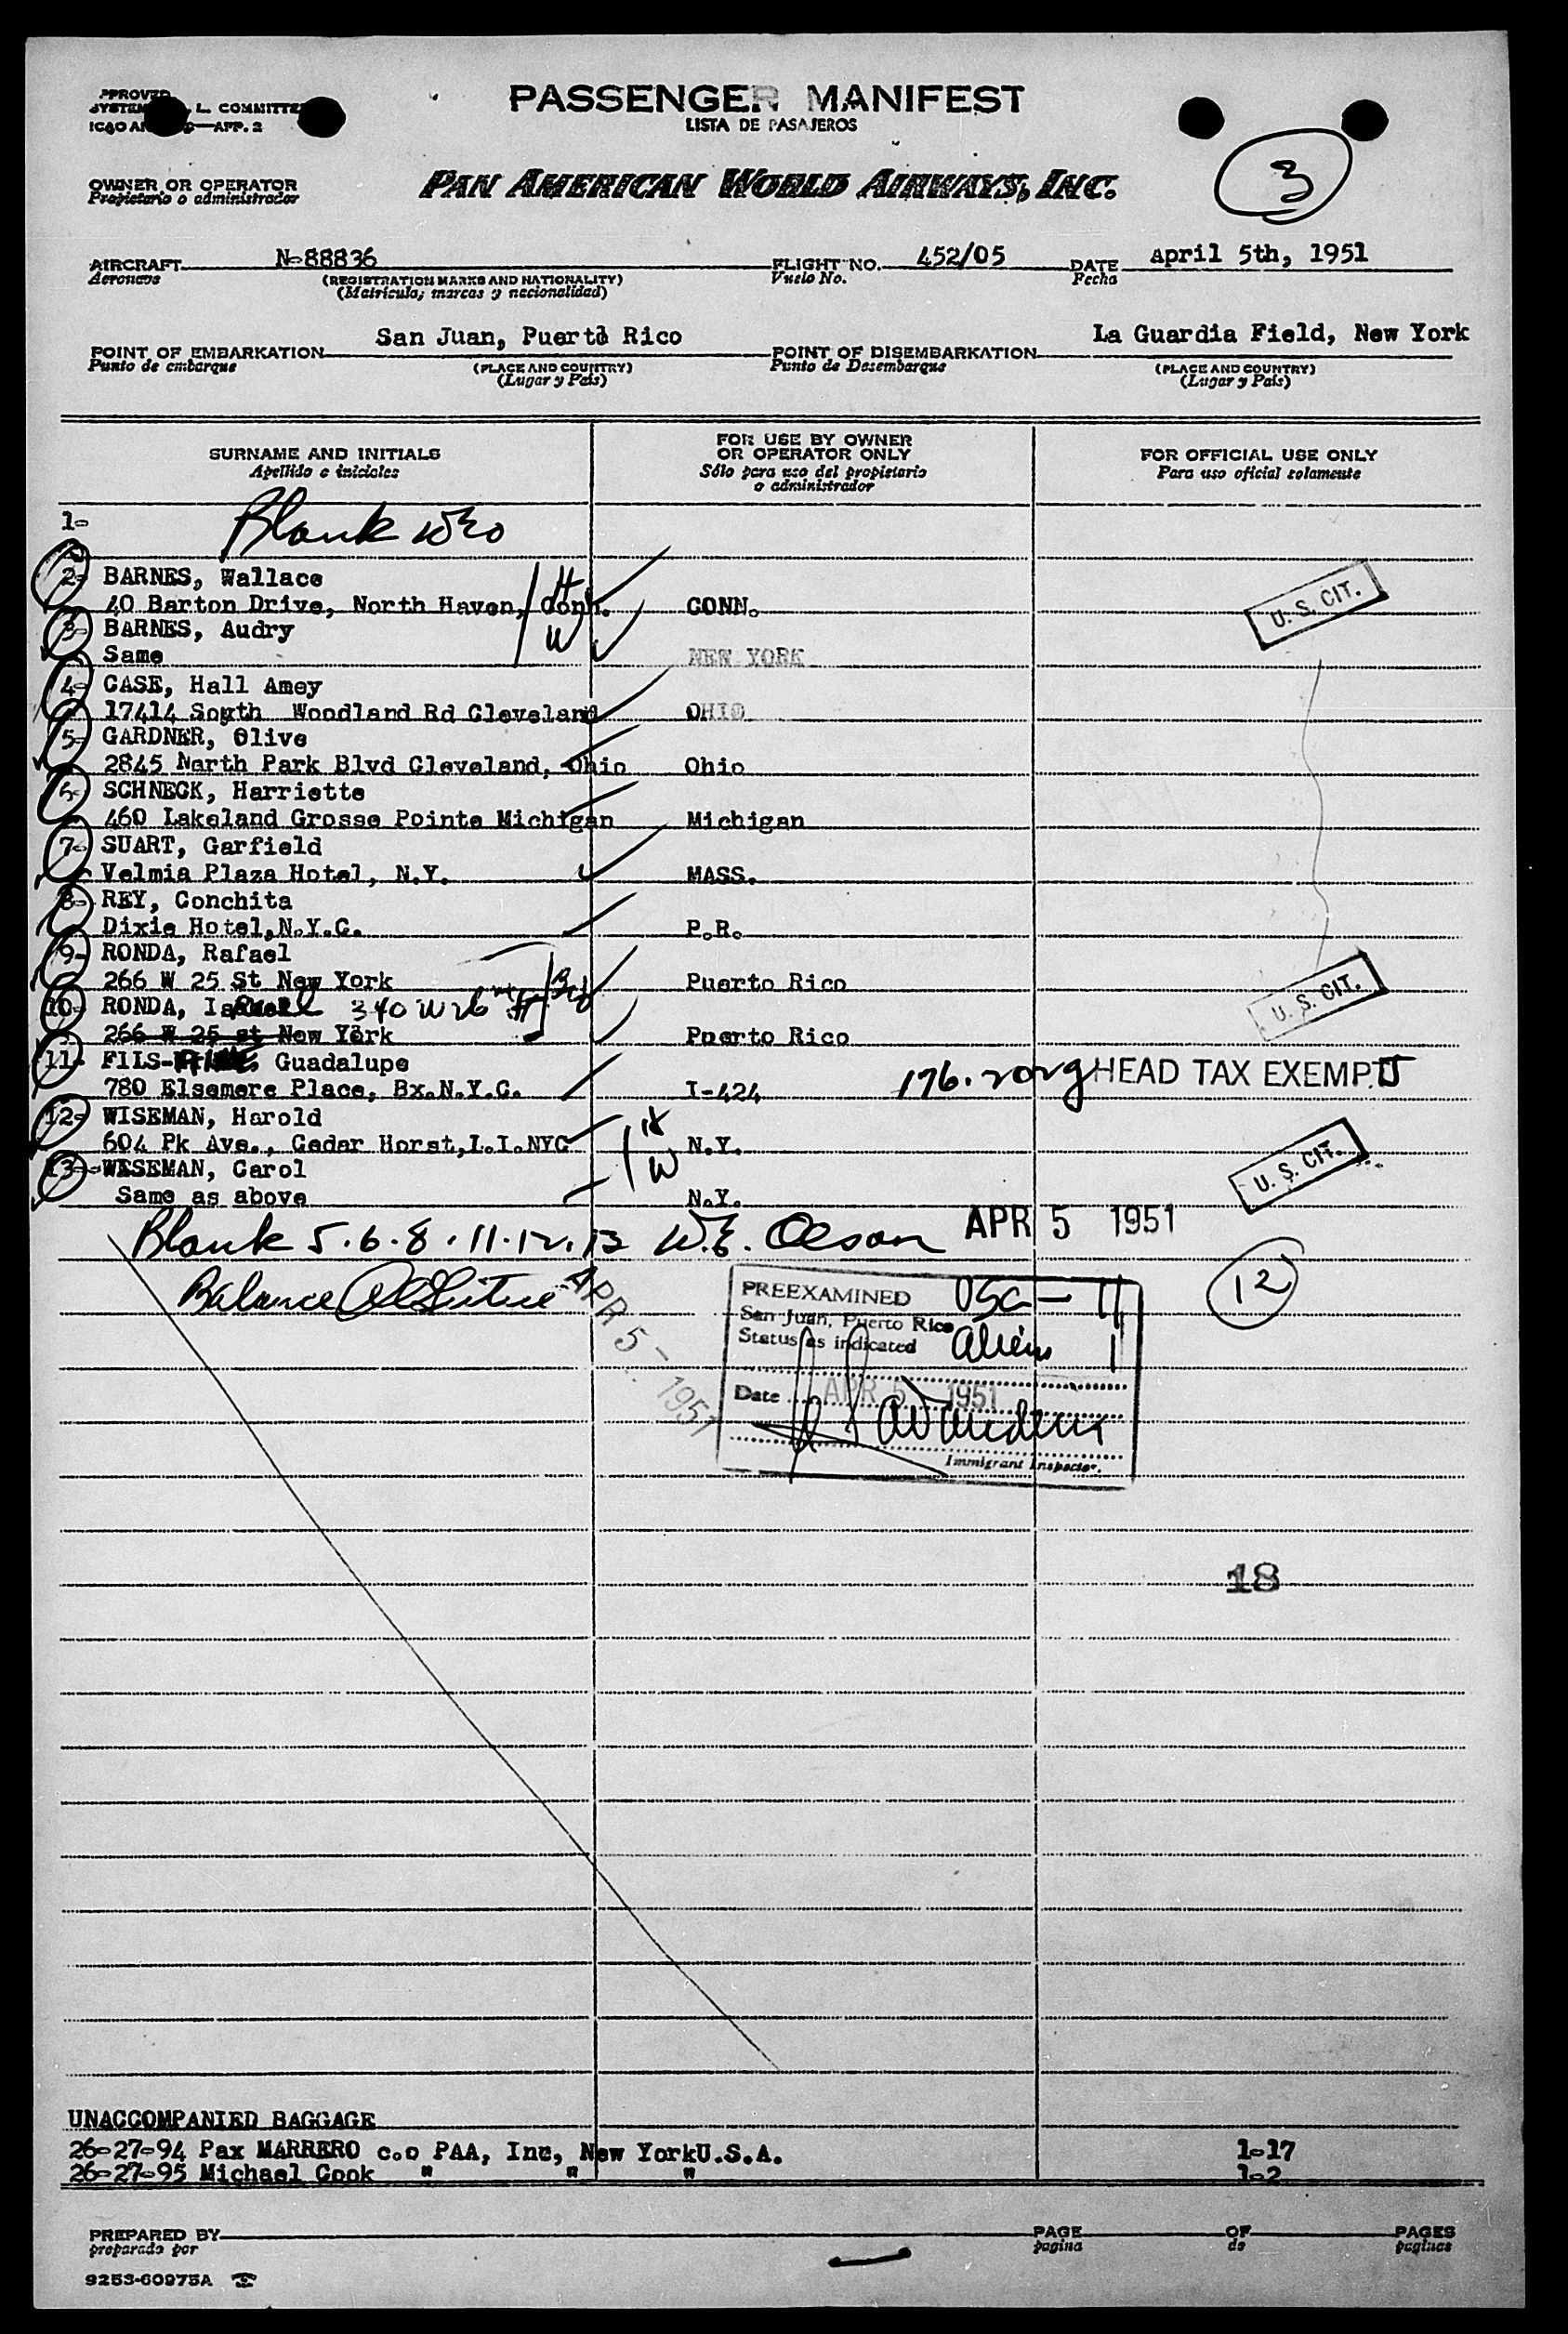 PASSENGER MANIFEST
LISTA DE PASAJEROS
PPROVED
L. COMMITTE
APP. 2
3
OWNER OR OPERATOR
Propietario o administrador
PAN AMERICAN WORLD AIRWAYS, INC.
AIRCRAFT N-88836 FLIGHT NO. 452/05 DATE April 5th, 1951
Aeronave (REGISTRATION MARKS AND NATIONALITY) Vuelo No. Fecha
(Matrícula, marcas y nacionalidad)
POINT OF EMBARKATION San Juan, Puerto Rico POINT OF DISEMBARKATION La Guardia Field, New York
Punto de embarque (PLACE AND COUNTRY) Punto de Desembarque (PLACE AND COUNTRY)
(Lugar y País) (Lugar y País)
SURNAME AND INITIALS FOR USE BY OWNER OR OPERATOR ONLY FOR OFFICIAL USE ONLY
Apellido e iniciales Sólo para uso del propietario o administrador Para uso oficial solamente
1- Blank WEO
2- BARNES, Wallace H
40 Barton Drive, North Haven, Conn. CONN. U. S. CIT.
3- BARNES, Audry W
Same NEW YORK
4- CASE, Hall Amey
17414 South Woodland Rd Cleveland OHIO
5- GARDNER, Olive
2845 North Park Blvd Cleveland, Ohio Ohio
6- SCHNECK, Harriette
460 Lakeland Grosse Pointe Michigan Michigan
7- SUART, Garfield
Velmia Plaza Hotel, N.Y. MASS.
8- REY, Conchita
Dixie Hotel, N.Y.C. P.R.
9- RONDA, Rafael
266 W 25 St New York Puerto Rico U. S. CIT.
10- RONDA, 340 W 26
266 W 25 st New York Puerto Rico
11- FILS- Guadalupe
780 Elsemere Place, Bx.N.Y.C. I-424 HEAD TAX EXEMPT
12- WISEMAN, Harold H
604 Pk Ave., Cedar Horst, L.I.NYC N.Y.
13- WISEMAN, Carol W U. S. CIT.
Same as above N.Y.
Blank 5.6.8.11.12.13 W.E. Olson APR 5 1951
Balance APR 5 - 1951 12
PREEXAMINED USC - 11
San Juan, Puerto Rico
Status as indicated Aliens 1
Date APR 5 1951
Immigrant Inspector.
18
UNACCOMPANIED BAGGAGE
26-27-94 Pax MARRERO c.o PAA, Inc, New YorkU.S.A. 1-17
26-27-95 Michael Cook " " " 1-2
PREPARED BY PAGE OF PAGES
preparado por pagina de paginas
9253-60975A